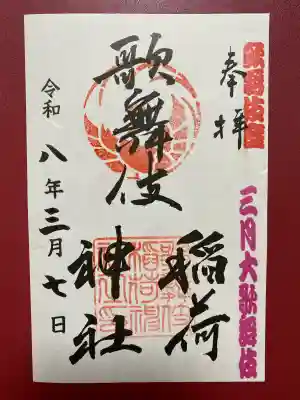 歌舞伎座
奉拝
三月大歌舞伎
歌舞伎
稲荷
神社
令和八年三月七日